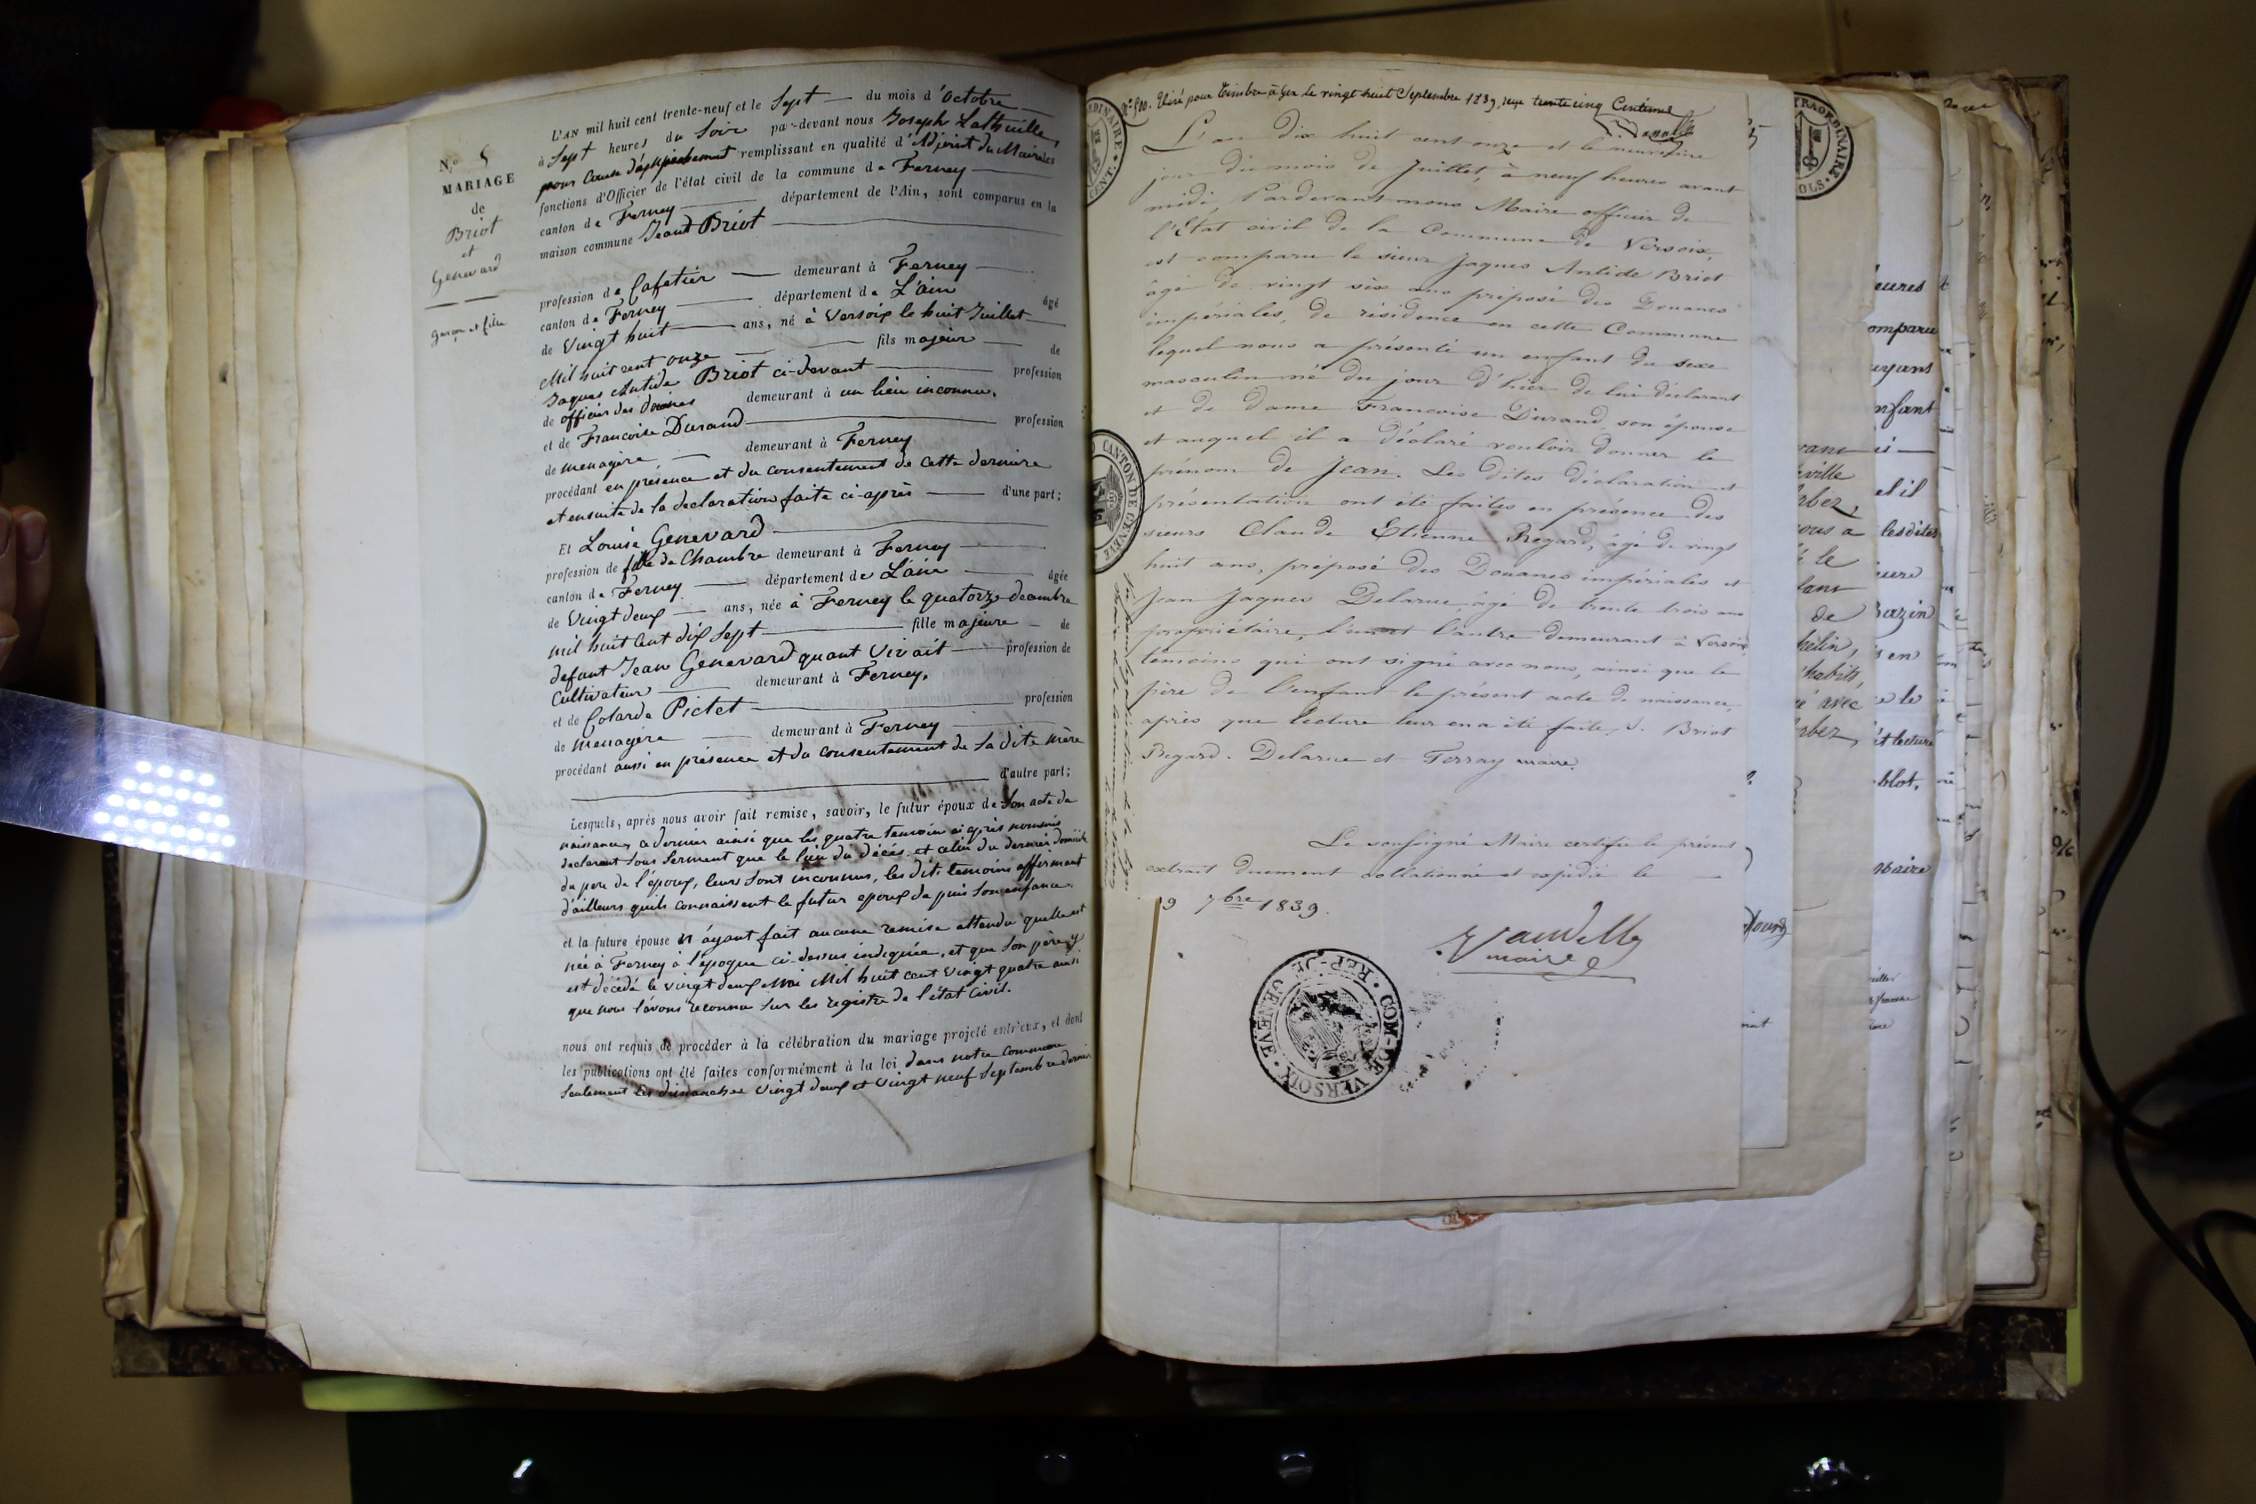 N.º 5
MARIAGE
de
Briot
et
Genevard
garçon et fille
L'AN mil huit cent trente-neuf et le Sept du mois d'Octobre
à Sept heures du Soir par-devant nous Joseph Lathuille,
pour Cause d'empêchement remplissant en qualité d'Adjoint du Maire les
fonctions d'Officier de l'état civil de la commune de Ferney
canton de Ferney département de l'Ain, sont comparus en la
maison commune Jean Briot
profession de Cafetier demeurant à Ferney
canton de Ferney département de L'ain âgé
de Vingt huit ans, né à Versoix le huit Juillet
Mil huit cent onze fils majeur de
Jaques Antide Briot ci-devant profession
de officier des douanes demeurant à un lieu inconnu.
et de Francoise Durand profession
de menagère demeurant à Ferney
procédant en présence et du consentement de cette dernière
et ensuite de la declaration faite ci-après d'une part;
Et Louise Genevard
profession de fille de Chambre demeurant à Ferney
canton de Ferney département de L'ain âgée
de Vingt deux ans, née à Ferney le quatorze decembre
mil huit Cent dix Sept fille majeure de
defunt Jean Genevard quant Vivait profession de
Cultivateur demeurant à Ferney.
et de Colarde Pictet profession
de menagère demeurant à Ferney
procédant aussi en présence et du consentement de Sa dite mère
d'autre part;
Lesquels, après nous avoir fait remise, savoir, le futur époux de Son acte de
naissance, ce dernier ainsi que les quatre temoins ci après nommés
declarent Sous Serment que le lieu du décés et celui du dernier domicile
du pere de l'époux, leurs Sont inconnus, les dits temoins affirmant
d'ailleurs qu'ils connaissent le futur epoux depuis Son enfance.
et la future épouse n'ayant fait aucune remise attendu quelle est
née à Ferney à l'époque ci-dessus indiquée, et que Son père y
est décédé le vingt deux Mai Mil huit cent vingt quatre ainsi
que nous l'avons reconnu Sur les registres de l'état Civil.
nous ont requis de procéder à la célébration du mariage projeté entr'eux, et dont
les publications ont été faites conformément à la loi dans notre commune
Seulement les dimanches Vingt deux et Vingt neuf Septembre dernier
N.º 500. Visé pour Timbre à Gex le vingt huit Septembre 1839, reçu trente cinq Centimes
L'an dix huit cent onze et le neuvième
jour du mois de Juillet, à neuf heures avant
midi, Pardevant nous Maire officier de
l'Etat civil de la Commune de Versoix,
est comparu le sieur Jaques Antide Briot
âgé de vingt six ans préposé des Douanes
impériales, de résidence en cette Commune
lequel nous a présenté un enfant du sexe
masculin né du jour d'hier de lui déclarant
et de dame Francoise Durand son épouse
et auquel il a déclaré vouloir donner le
prénom de Jean. Les dites déclaration et
présentation ont été faites en présence des
sieurs Claude Etienne Regard, âgé de vingt
huit ans, preposé des Douanes impériales et
Jean Jaques Delarue, âgé de trente trois ans
propriétaire, l'un et l'autre demeurant à Versoix
témoins qui ont signé avec nous, ainsi que le
père de l'enfant le présent acte de naissance,
après que lecture leur en a été faite, J. Briot
Regard. Delarue et Ferray maire.
Le soussigné Maire certifie le présent
extrait duement collationné et expédié le
9 7bre 1839.
maire
COM. DE VERSOIX. REP. DE GENEVE
CANTON DE GENEVE